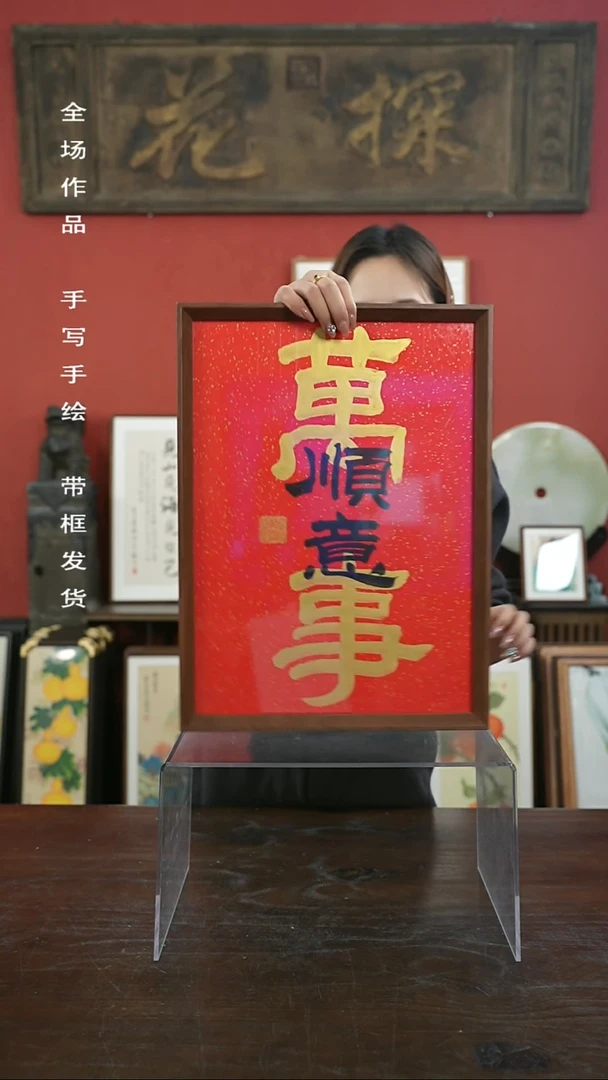 探花
全场作品 手写手绘 带框发货
萬順意事